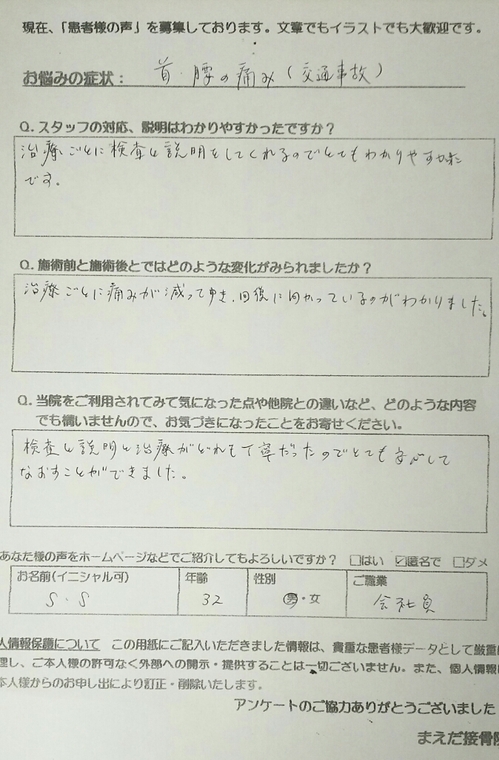 現在、「患者様の声」を募集しております。文章でもイラストでも大歓迎です。
お悩みの症状： 首・腰の痛み（交通事故）
Q. スタッフの対応、説明はわかりやすかったですか？
治療ごとに検査と説明をしてくれるのでとてもわかりやすかった
です。
Q. 施術前と施術後とではどのような変化がみられましたか？
治療ごとに痛みが減ってゆき、回復に向かっているのがわかりました。
Q. 当院をご利用されてみて気になった点や他院との違いなど、どのような内容
でも構いませんので、お気づきになったことをお寄せください。
検査と説明と治療がどれも丁寧だったのでとても安心して
なおすことができました。
あなた様の声をホームページなどでご紹介してもよろしいですか？ □はい ☑匿名で □ダメ
お名前(イニシャル可) 年齢 性別 ご職業
S・S 32 男・女 会社員
人情報保護について この用紙にご記入いただきました情報は、貴重な患者様データとして厳重に
理し、ご本人様の許可なく外部への開示・提供することは一切ございません。また、個人情報は
本人様からのお申し出により訂正・削除いたします。
アンケートのご協力ありがとうございました
まえだ接骨院